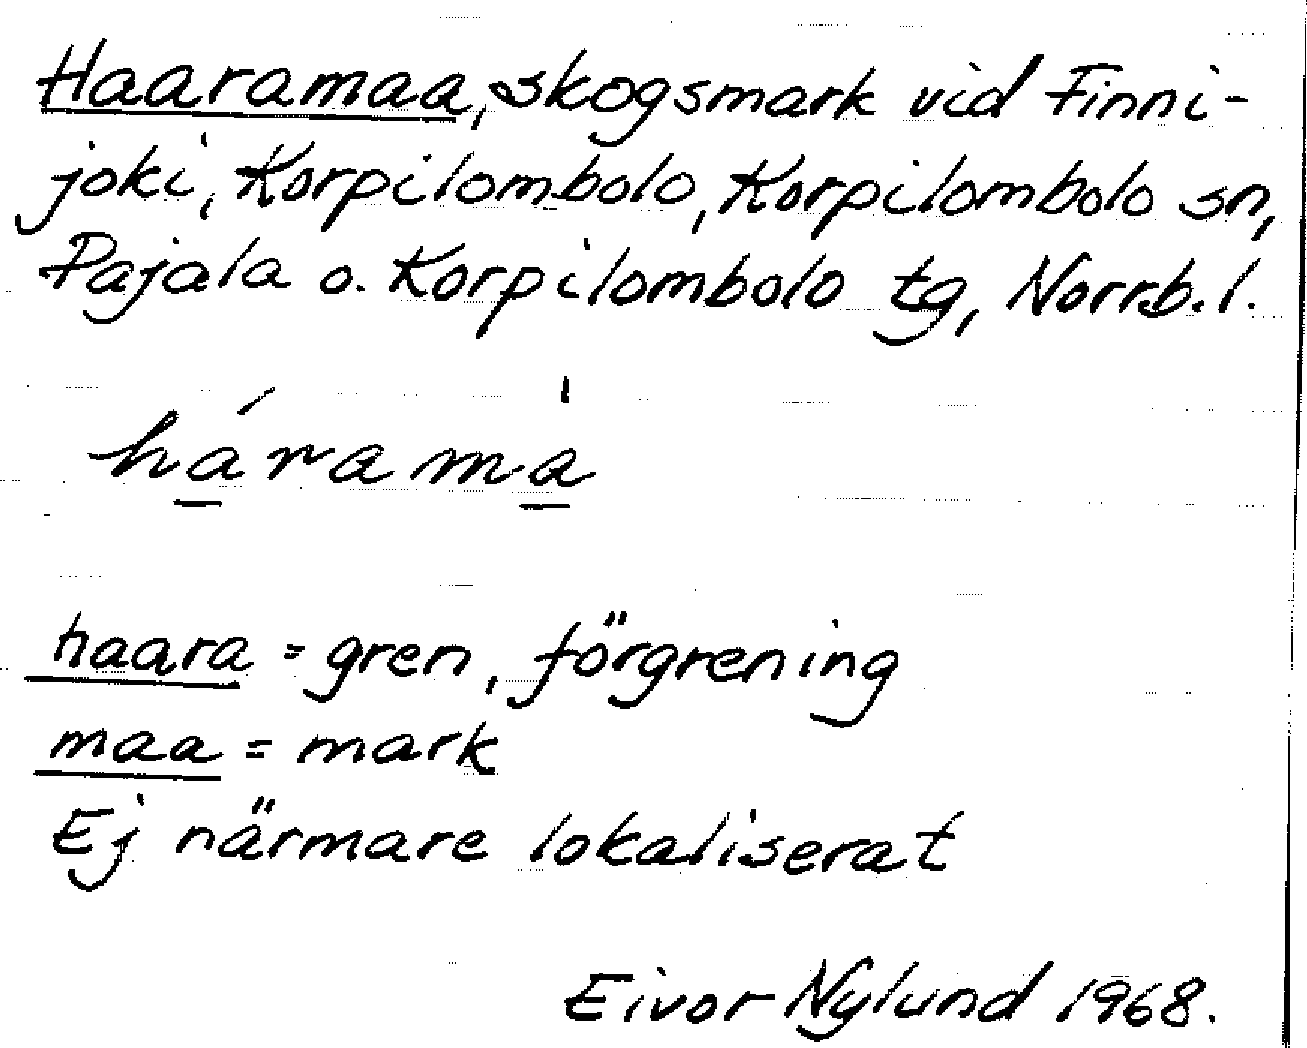 Haaramaa, skogsmark vid Finni-
joki, Korpilombolo, Korpilombolo sn,
Pajala o. Korpilombolo tg, Norrb. l.
há̱rama̱̍
haara = gren, förgrening
maa = mark
Ej närmare lokaliserat
Eivor Nylund 1968.